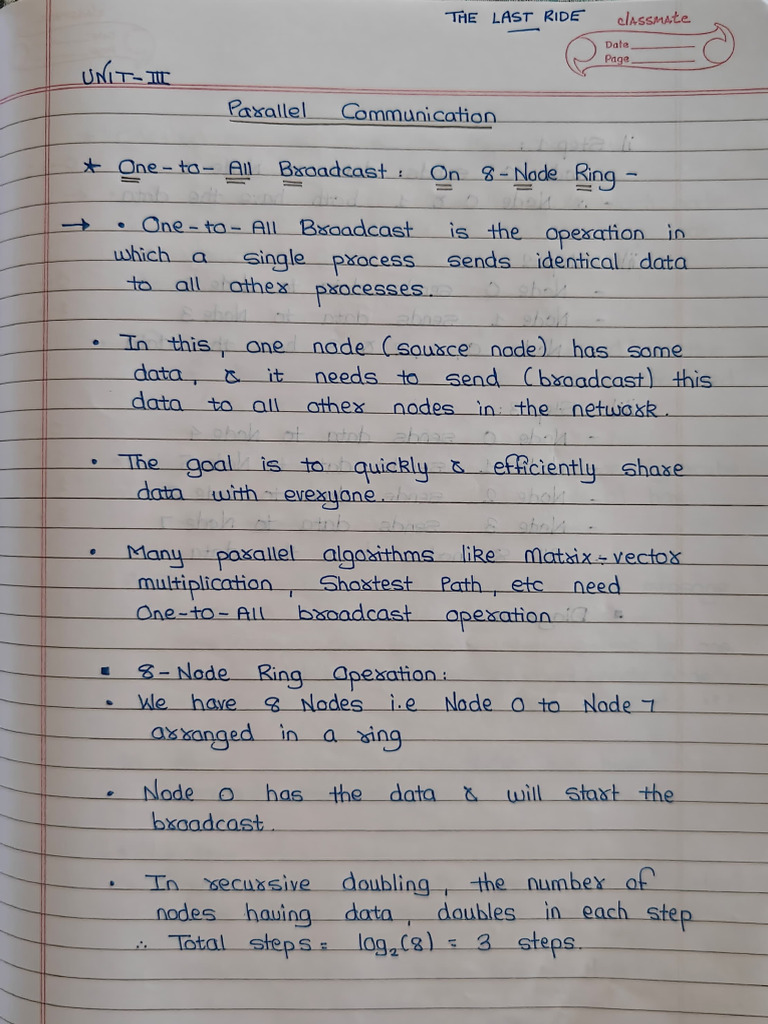 THE LAST RIDE
classmate
Date
Page
UNIT-III
Parallel Communication
* One-to-All Broadcast: On 8-Node Ring -
→ • One-to-All Broadcast is the operation in
which a single process sends identical data
to all other processes.
• In this, one node (source node) has some
data, & it needs to send (broadcast) this
data to all other nodes in the network.
• The goal is to quickly & efficiently share
data with everyone.
• Many parallel algorithms like Matrix-vector
multiplication, Shortest Path, etc need
One-to-All broadcast operation
▪ 8-Node Ring Operation:
• We have 8 Nodes i.e Node 0 to Node 7
arranged in a ring
• Node 0 has the data & will start the
broadcast.
• In recursive doubling, the number of
nodes having data, doubles in each step
∴ Total steps = log₂(8) = 3 steps.